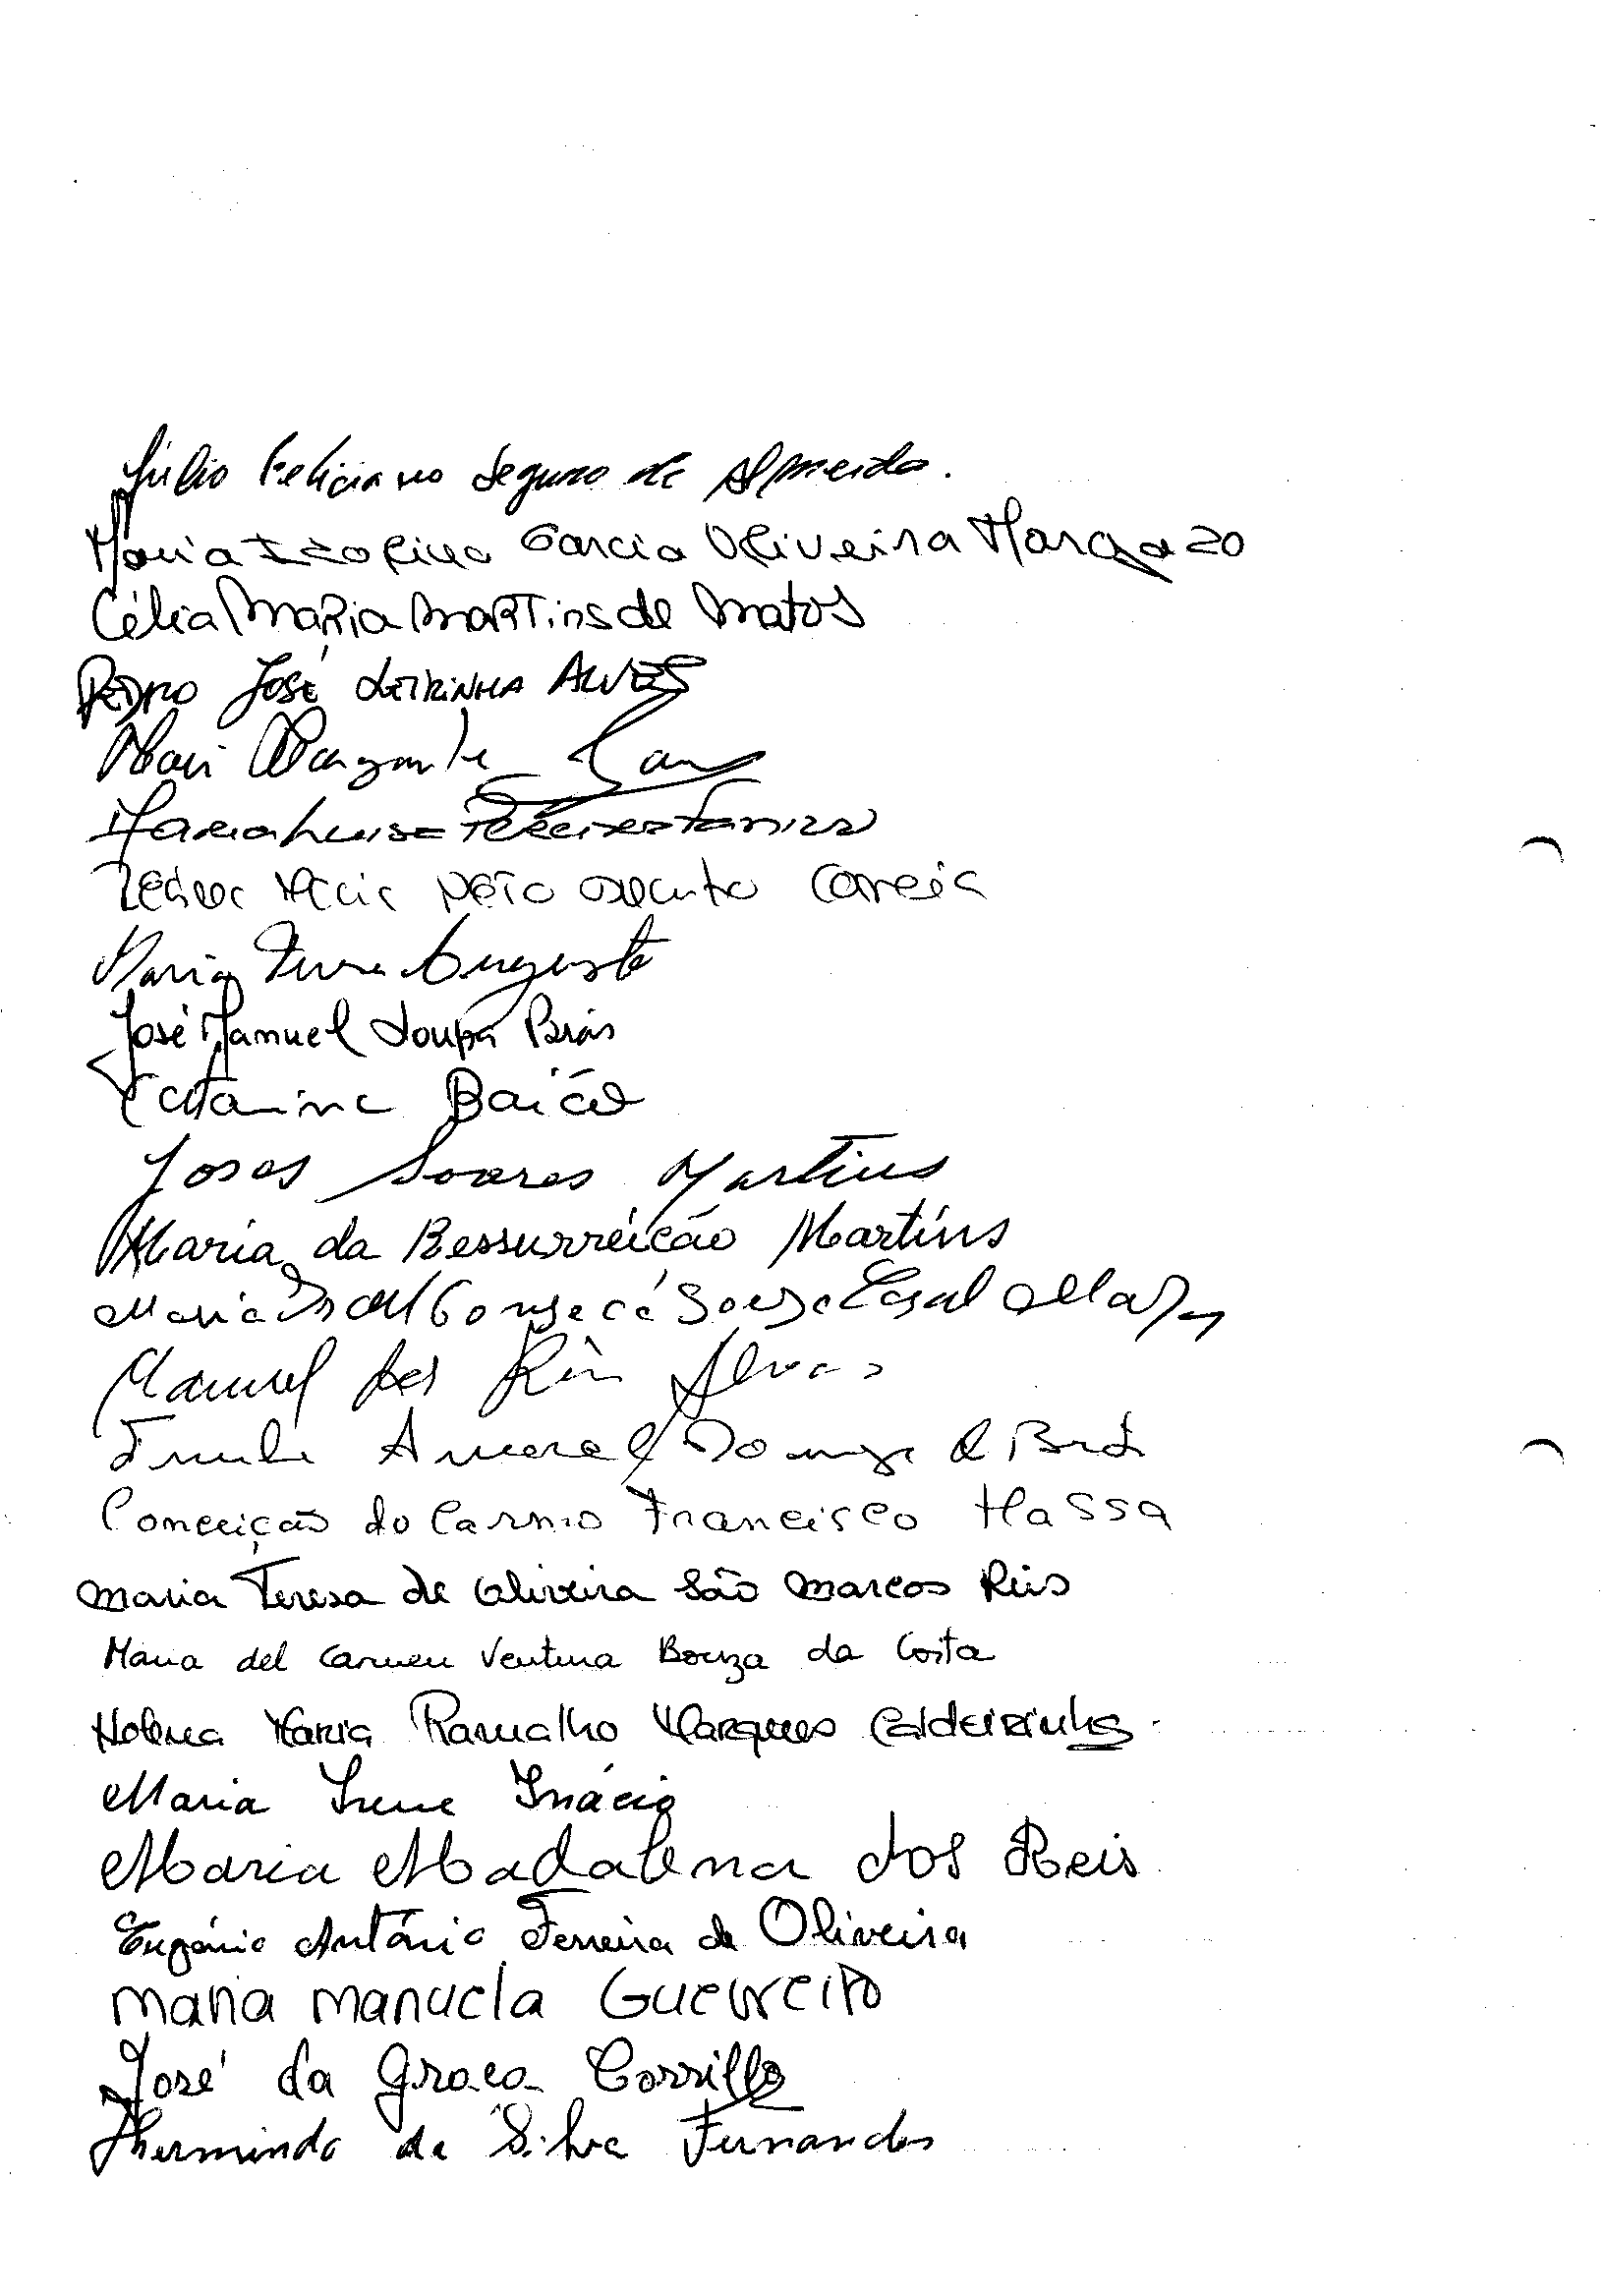 Júlio Feliciano Seguro de Almeida.
Maria Izolina Garcia Oliveira Margazo
Célia Maria Martins de Matos
Pedro José Leirinha Alves
Margarida
Maria Luisa
Neto Correia
Maria Augusta
José Manuel Loupa Brás
Catarina
Joses Soares Martins
Maria da Ressurreição Martins
Maria Fonseca Sousa Casal
Manuel dos Reis Alves
Amaral
Conceição do Carmo Francisco Massa
Maria Teresa de Oliveira São Marcos Reis
Maria del Carmen Ventura Bouza da Costa
Helena Maria Ramalho Marques Caldeirinha
Maria Irene Inácio
Maria Madalena dos Reis
Eugénio António Ferreira de Oliveira
Maria Manuela Guerreiro
José da Graca Corrillo
Hermindo da Silva Fernandes